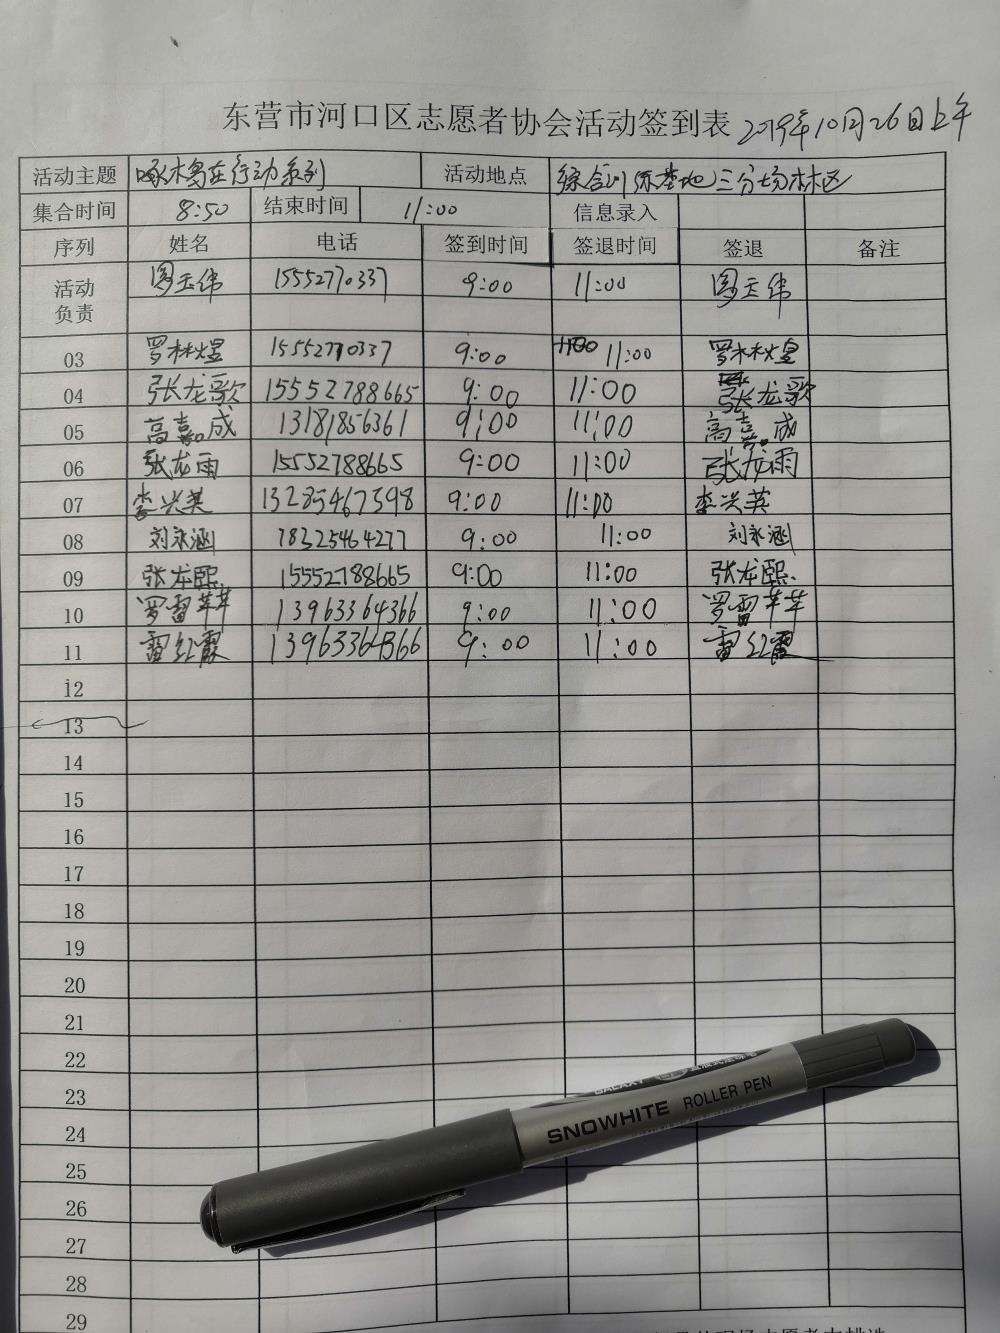 东营市河口区志愿者协会活动签到表 2019年10月26日上午
活动主题 啄木鸟在行动系列 活动地点 综合训练基地三分场林区
集合时间 8:50 结束时间 11:00 信息录入
序列 姓名 电话 签到时间 签退时间 签退 备注
活动负责 周玉伟 15552770337 9:00 11:00 周玉伟
03 罗林煜 15552770337 9:00 11:00 罗林煜
04 张龙歌 15552788665 9:00 11:00 张龙歌
05 高嘉成 13181856361 9:00 11:00 高嘉成
06 张龙雨 15552788665 9:00 11:00 张龙雨
07 李兴英 13285467598 9:00 11:00 李兴英
08 刘永涵 18325464277 9:00 11:00 刘永涵
09 张龙熙 15552788665 9:00 11:00 张龙熙
10 罗雷苹苹 13963364366 9:00 11:00 罗雷苹苹
11 雷红霞 13963364366 9:00 11:00 雷红霞
12
13
14
15
16
17
18
19
20
21
22
23
24
25
26
27
28
29
SNOWHITE ROLLER PEN